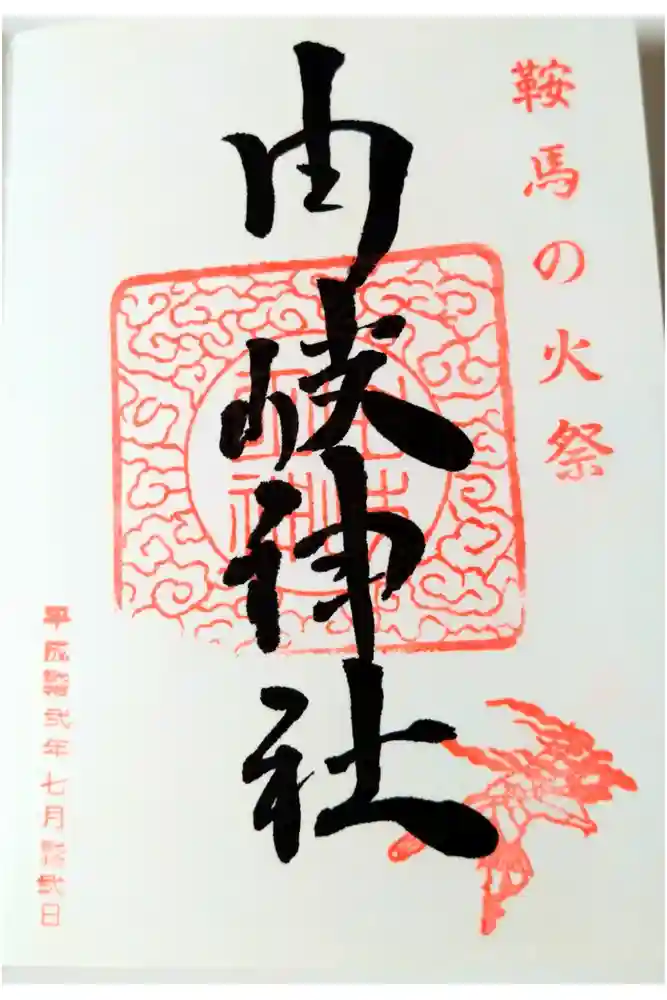 鞍馬の火祭
由岐神社
平成弐年七月弐日